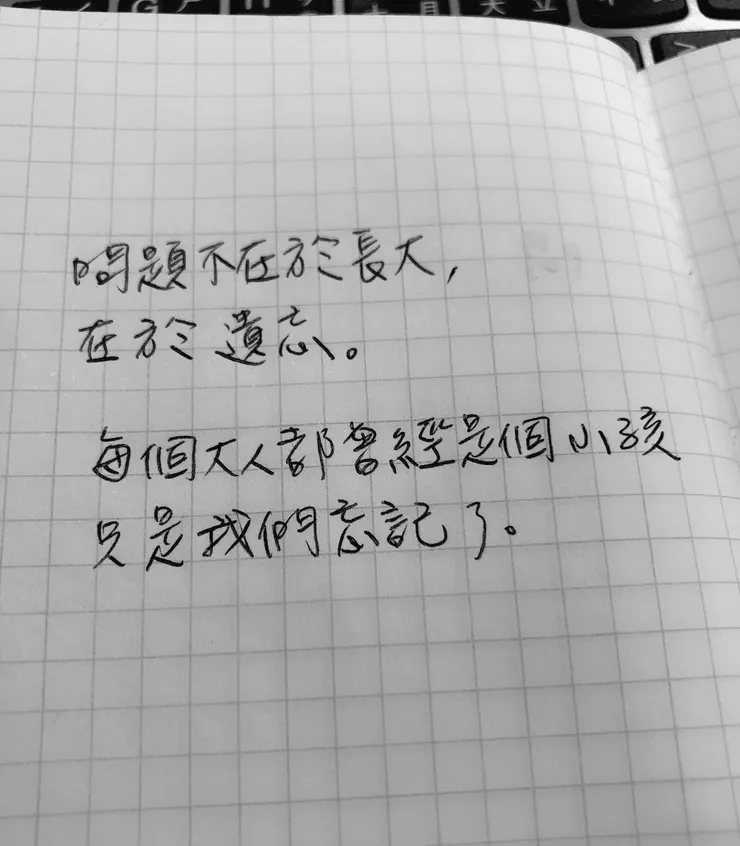 問題不在於長大,
在於遺忘。
每個大人都曾經是個小孩
只是我們忘記了。